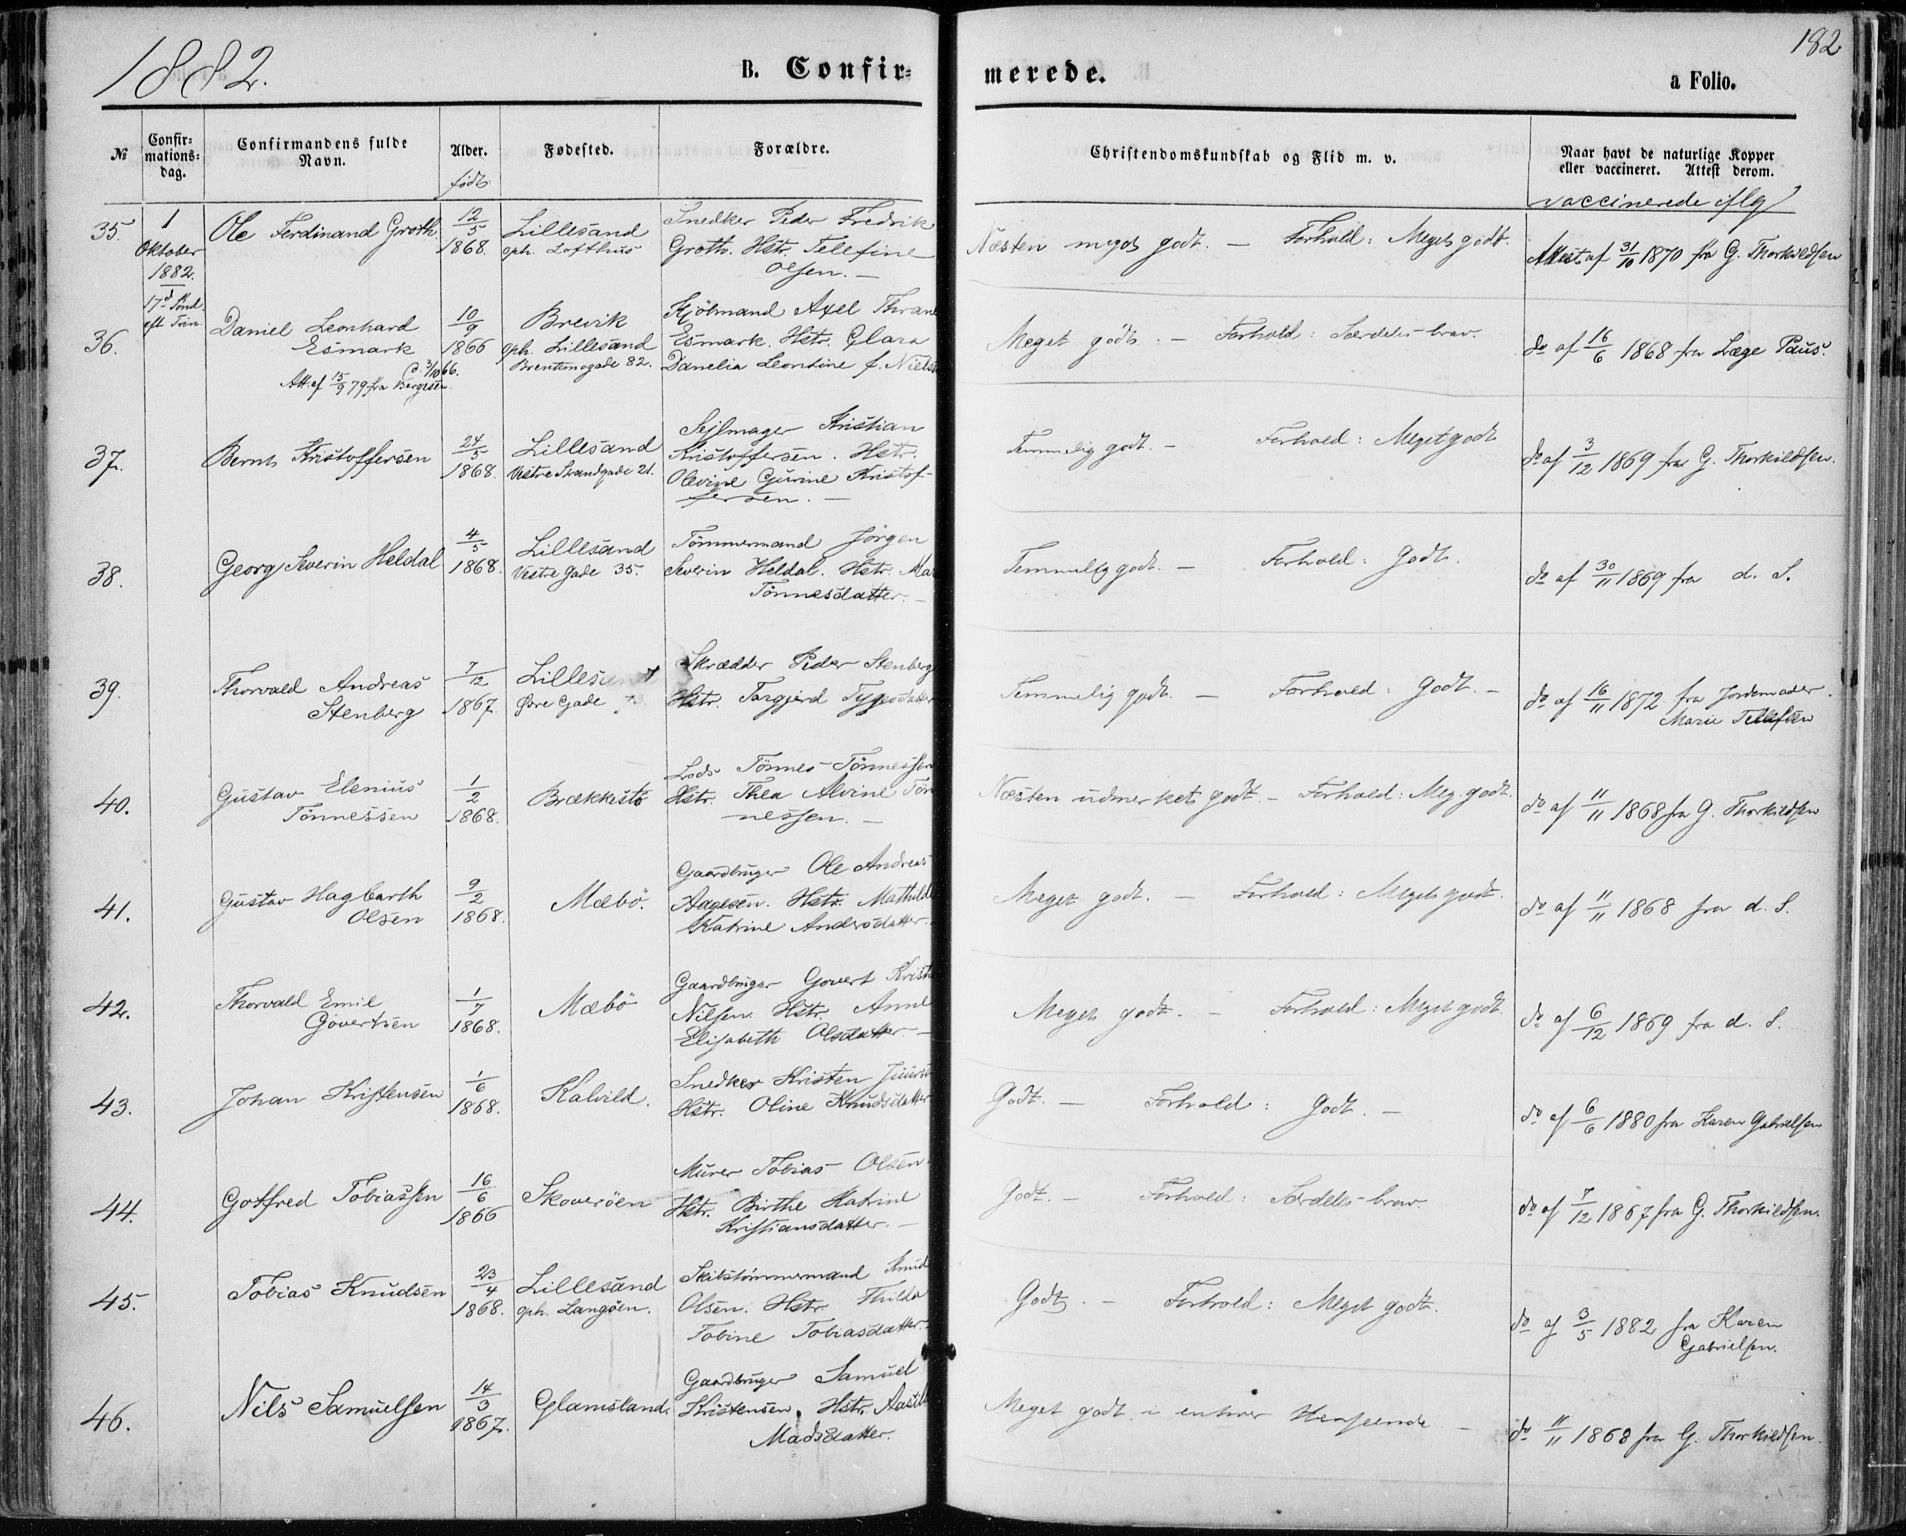 1882.
B. Confir-
merede.
182
a Folio.
№
Confir-
mations-
dag.
Confirmandens fulde
Navn.
Alder.
født
Fødested.
Forældre.
Christendomskundskab og Flid m. v.
Naar havt de naturlige Kopper
eller vaccineret. Attest derom.
vaccinerede iflg
35.
1
Oktober
1882.
17d Sønd.
eft Trin.
Ole Ferdinand Groth
12/5
1868.
Lillesand
oph. Lofthus
Snedker Peder Fredrik
Groth. Hstr. Telefine
Olsen. —
Næsten meget godt. — Forhold: Meget godt.
Attest af 31/10 1870 fra G. Thorkildsen
36.
Daniel Leonhard
Esmark
D. 3/10 66.
Att. af 15/9 79 fra Bergesen
10/9
1866
Brevik
oph. Lillesand
82.
Kjøbmand Axel Thrane
Esmark. Hstr. Clara
Danelia Leontine f. Niels
Meget godt. — Forhold: Særdeles brav.
do af 16/6 1868 fra Læge Paus.
37.
Bernt Kristoffersen
24/5
1868.
Lillesand
Vestre Strandgade 21.
Sejlmager Kristian
Kristoffersen. Hstr.
Olevine Gurine Kristof-
fersen. —
Temmelig godt. — Forhold: Meget godt
do af 3/12 1869 fra G. Thorkildsen.
38.
Georg Severin Heldal
4/5
1868.
Lillesand
Vestre Gade 35.
Tömmermand Jörgen
Severin Heldal. Hstr. Mar
Tönnesdatter. —
Temmelig godt. — Forhold: Godt.
do af 30/11 1869 fra d. S.
39.
Thorvald Andreas
Stenberg
7/12
1867.
Lillesand
Øvre Gade 73.
Skrædder Peder Stenberg
Hstr. Torgjerd Tygesdatter
Temmelig godt. — Forhold: Godt. —
do af 16/11 1872 fra Jordemoder
Marie Tellefsen
40.
Gustav Elenius
Tönnessen
1/2
1868.
Brækkestö
Lods Tönnes Tönnessen
Hstr. Thea Alvine Tön
nessen. —
Næsten udmerket godt. — Forhold: Meg. godt.
do af 11/11 1868 fra G. Thorkildsen
41.
Gustav Hagbarth
Olsen
9/2
1868.
Mæbö.
Gaardbruger Ole Andreas
Aagesen. Hstr. Mathilde
Katrine Andersdatter.
Meget godt. — Forhold: Meget godt.
do af 11/11 1868 fra d. S.
42.
Thorvald Emil
Govertsen
1/7
1868.
Mæbö
Gaardbruger Govert Krist
Nilsen. Hstr. Anne
Elisabeth Olsdatter. —
Meget godt. — Forhold: Meget godt.
do af 6/12 1869 fra d. S.
43.
Johan Kristensen
1/6
1868.
Kalvild.
Snedker Kristen
Hstr. Oline Knudsdatter
Godt. — Forhold: Godt. —
do af 6/6 1880 fra Karen Gabrielsen
44.
Gotfred Tobiassen
16/6
1866
Skoveröen
Murer Tobias Olsen.
Hstr. Birthe Katrine
Kristiansdatter. —
Godt. — Forhold: Særdeles brav.
do af 7/12 1867 fra G. Thorkildsen.
45.
Tobias Knudsen
23/4
1868.
Lillesand
oph. Langöen.
Skibstömmermand Knud
Olsen. Hstr. Thilda
Tobine Tobiasdatter.
Godt. — Forhold: Meget godt.
do af 3/5 1882 fra Karen
Gabrielsen.
46.
Nils Samuelsen
14/3
1867.
Glamsland.
Gaardbruger Samuel
Kristensen. Hstr. Aasil
Madsdatter.
Meget godt i enhver Henseende —
do 11/11 1868 fra G. Thorkildsen.